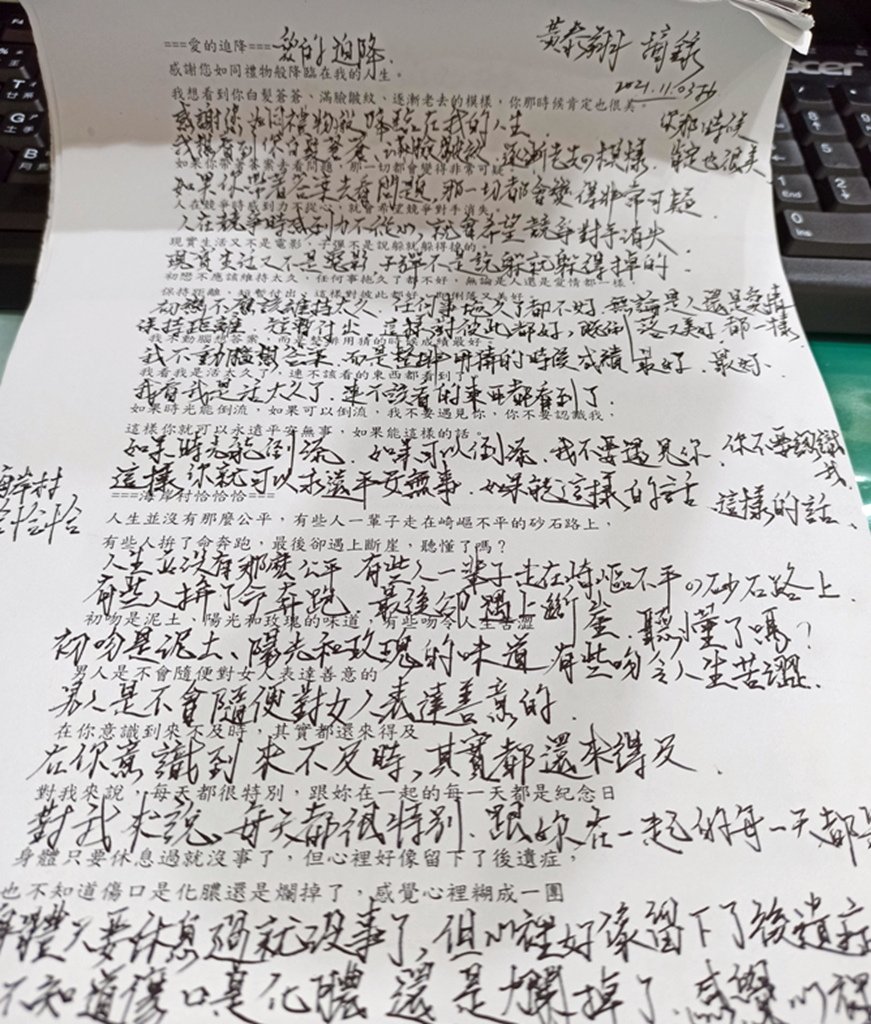 ===愛的迫降=== 愛的迫降.
黃泰翔 摘錄
2021.11.03
感謝您如同禮物般降臨在我的人生。
我想看到你白髮蒼蒼、滿臉皺紋、逐漸老去的模樣，你那時候肯定也很美。
感謝您如同禮物般降臨在我的人生. 你那時候
我想看到你白髮蒼蒼、滿臉皺紋、逐漸老去の模樣. 肯定也很美.
如果你帶著答案去看問題，那一切都會變得非常可疑
如果你帶著答案去看問題, 那一切都會變得非常可疑
人在競爭時感到力不從心，就會希望競爭對手消失
人在競爭時感到力不從心, 就會希望競爭對手消失
現實生活又不是電影，子彈不是說躲就躲得掉的。
現實生活又不是電影 子彈不是說躲就躲得掉的.
初戀不應該維持太久，任何事拖久了都不好，無論是人還是愛情都一樣，
保持距離，短暫付出，這樣對彼此都好，既俐落又美好。
初戀不應該維持太久, 任何事拖久了都不好. 無論是人還是愛情
保持距離, 短暫付出, 這樣對彼此都好, 既俐落又美好. 都一樣.
我不動腦想答案，而是整排用猜的時候成績最好
我不動腦想答案, 而是整排用猜的時候成績最好. 最好.
我看我是活太久了，連不該看的東西都看到了
我看我是活太久了. 連不該看的東西都看到了.
如果時光能倒流，如果可以倒流，我不要遇見你，你不要認識我，
這樣你就可以永遠平安無事，如果能這樣的話。
如果時光能倒流. 如果可以倒流. 我不要遇見你. 你不要認識我.
這樣你就可以永遠平安無事. 如果能這樣的話 這樣的話.
===海岸村恰恰恰===
海岸村
恰恰恰
人生並沒有那麼公平，有些人一輩子走在崎嶇不平的砂石路上，
有些人拚了命奔跑，最後卻遇上斷崖，聽懂了嗎？
人生並沒有那麼公平 有些人一輩子走在崎嶇不平の砂石路上
有些人拚了命奔跑. 最後卻遇上斷崖. 聽懂了嗎?
初吻是泥土、陽光和玫瑰的味道，有些吻令人生苦澀
初吻是泥土、陽光和玫瑰的味道 有些吻令人生苦澀.
男人是不會隨便對女人表達善意的
男人是不會隨便對女人表達善意的.
在你意識到來不及時，其實都還來得及
在你意識到來不及時, 其實都還來得及.
對我來說，每天都很特別，跟妳在一起的每一天都是紀念日
對我來說. 每天都很特別. 跟妳在一起的每一天都是
身體只要休息過就沒事了，但心裡好像留下了後遺症，
也不知道傷口是化膿還是爛掉了，感覺心裡糊成一團
身體只要休息過就沒事了, 但心裡好像留下了後遺症
不知道傷口是化膿還是爛掉了. 感覺心裡